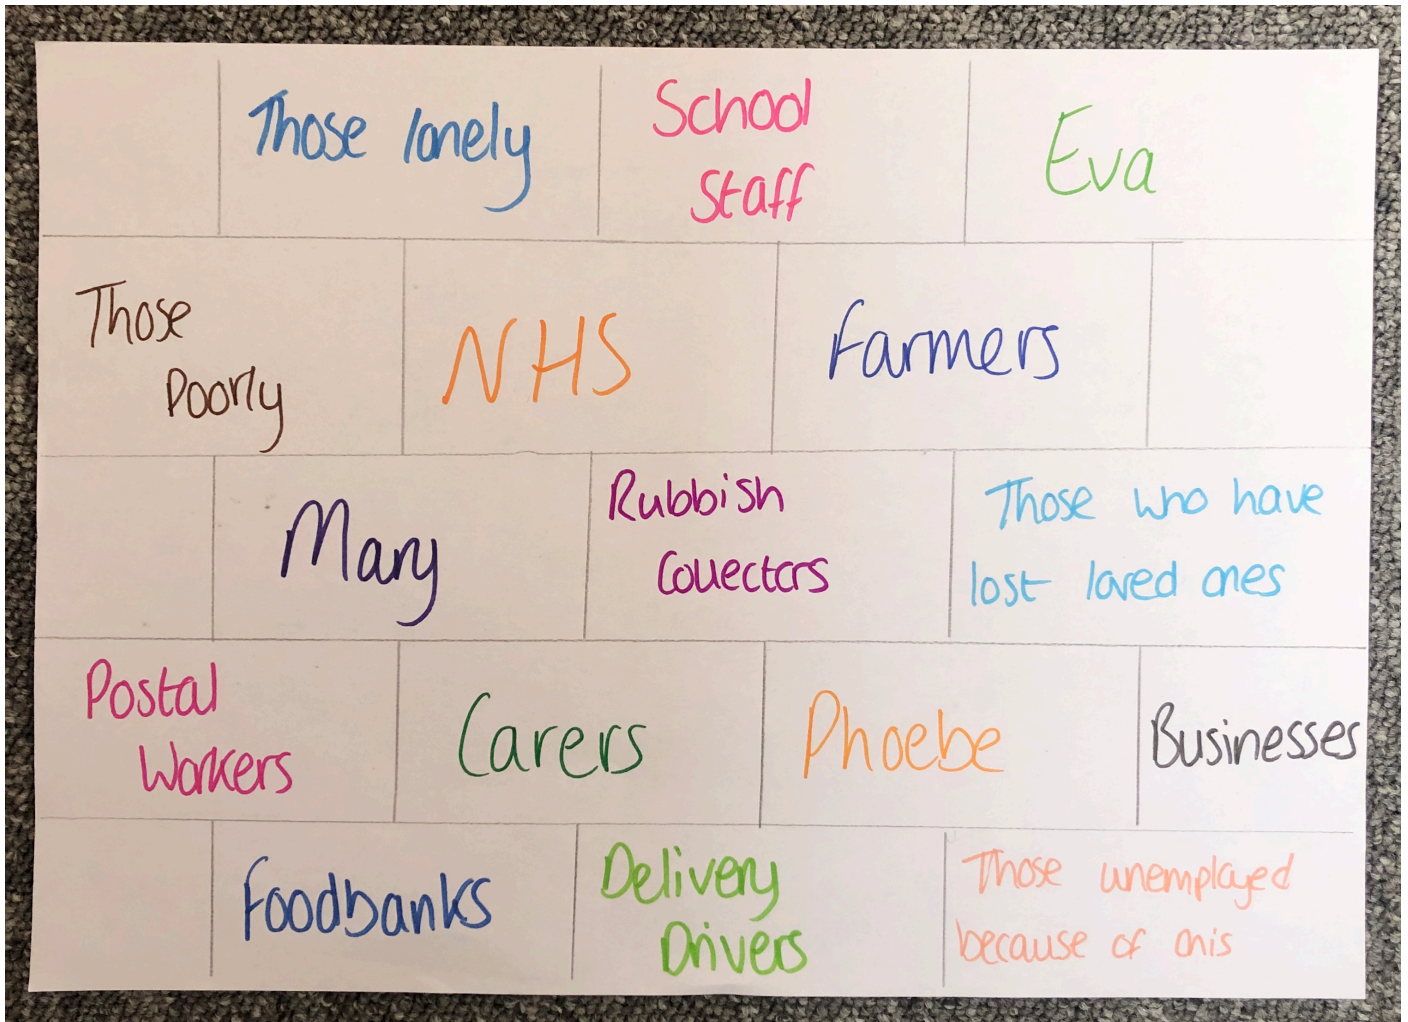 Those lonely
School
Staff
Eva
Those
Poorly
NHS
Farmers
Mary
Rubbish
Collectors
Those who have
lost loved ones
Postal
Workers
Carers
Phoebe
Businesses
Foodbanks
Delivery
Drivers
Those unemployed
because of this